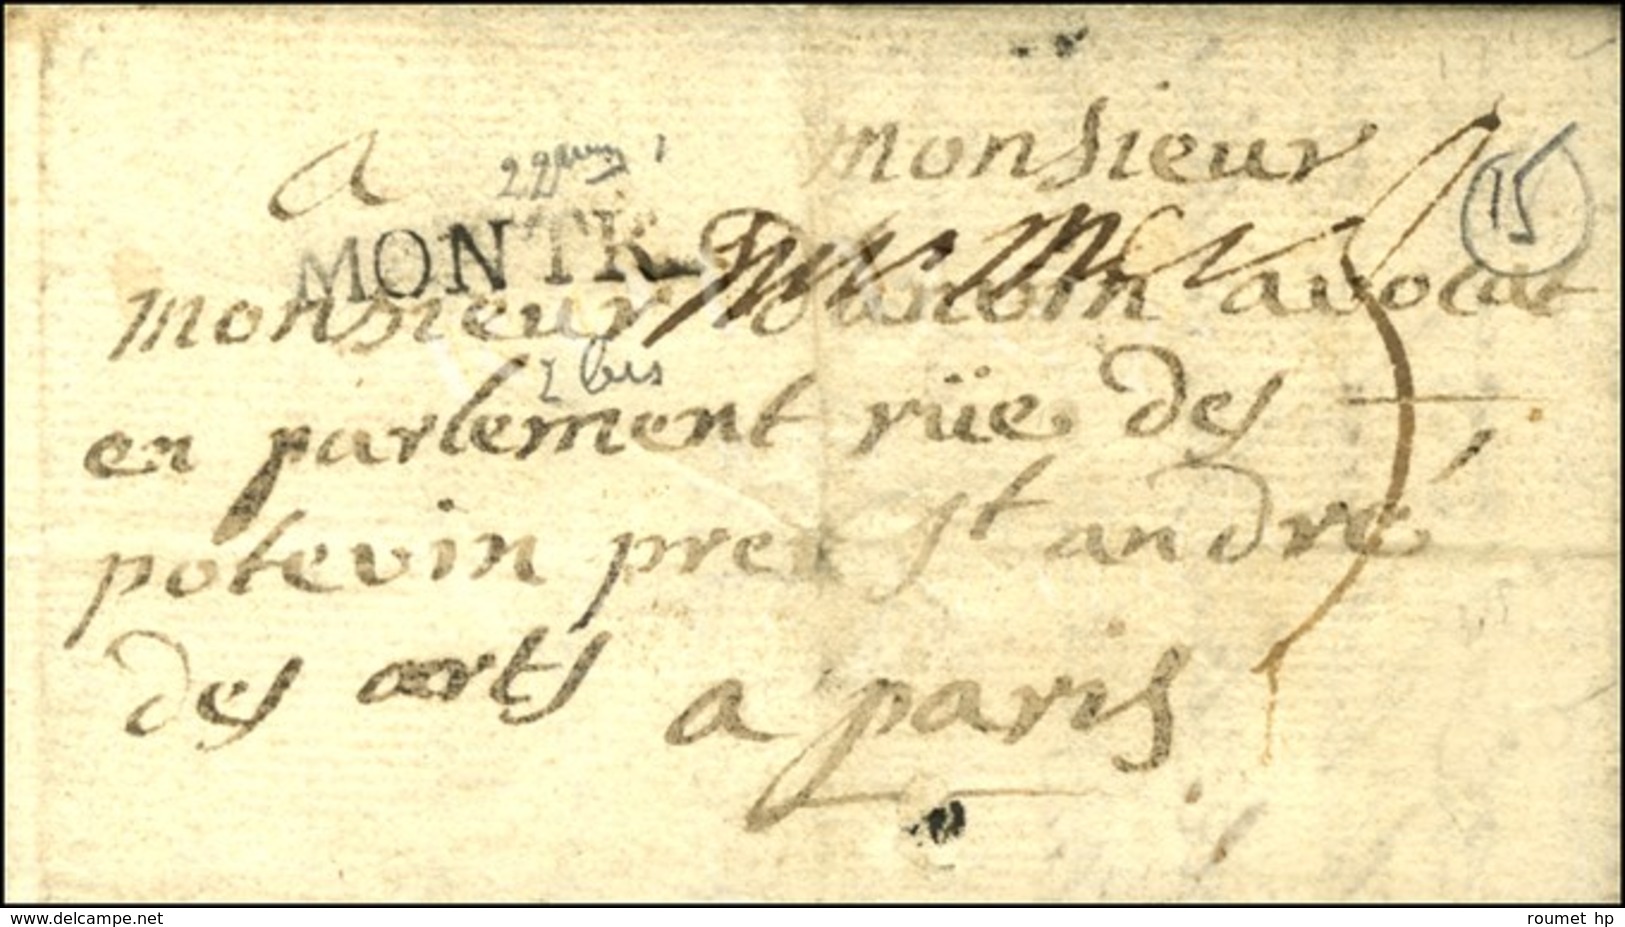 a monsieur
15
MONTR
monsieur avocat
2 bis
en parlement rüe des
potevin pres st andré
des arts a paris
www.delcampe.net
roumet hp